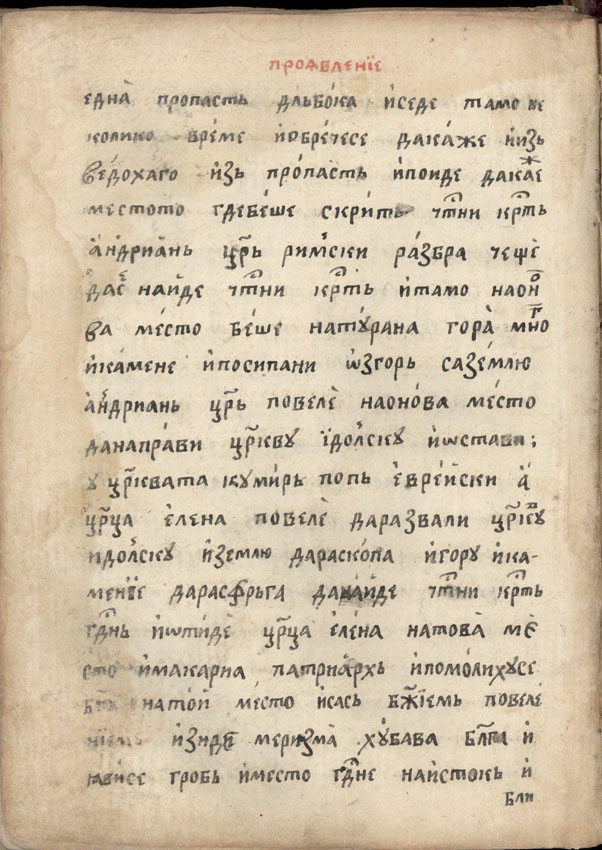 проѧвленїе
една̀ пропасть дльбо́ка и҆седе тамо не
колико вре́ме и҆ѡбре́чесе дака́же и҆изь
ве́дохаго и҆зь про́пасть и҆поиде дака́же
местото где бе́ше скри́ть чⷭ҇тни крⷭ҇ть
а҆ндриа́нь цр҃ь ри́мски ра́збра чеѱѐ
дасе на́иде чⷭ҇тни крⷭ҇ть и҆тамо наоно
ва место беше натꙋрана гора̀ мно́г
и҆ка́мене и҆посипани ѿзгорь сазе́млю
а҆ндриань цр҃ь повелѐ наоно́ва ме́сто
данапра́ви цр҃квꙋ і҆до́лскꙋ и҆ѡстави;
ꙋ цр҃квата кꙋми́рь попь е҆вре́иски а҆
цр҃ца е҆лена повелѐ даразвали цр҃квꙋ
идо́лскꙋ и҆землю дараскопа и҆горꙋ и҆ка-
менїе дарасфрьга дана́иде чⷭ҇тни крⷭ҇ть
гд҃нь и҆ѿи́де цр҃ца е҆ле́на натова̀ ме́
сто и҆макариа патриа́рхь и҆помо́лихꙋсе
бг҃ꙋ на то́й ме́сто и҆сась бж҃їемь повеле́
нїемь и҆зиде мери́зма хꙋ́бава бл҃га и҆
ꙗви́се гробь и҆место гд҃не на и҆стокь и҆
бли